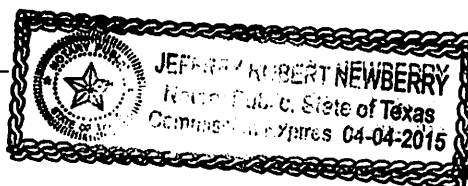 NOTARY PUBLIC
JEFFREY ROBERT NEWBERRY
Notary Public, State of Texas
Commission Expires 04-04-2015